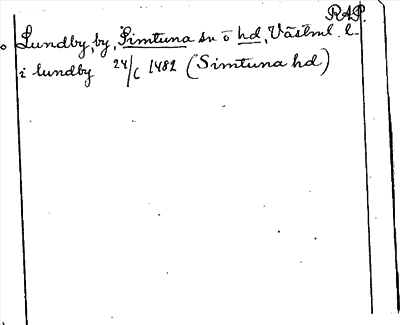 RAP.
Lundby, by, Simtuna sn o hd, Västml. l.
i lundby 24/6 1482 (Simtuna hd)